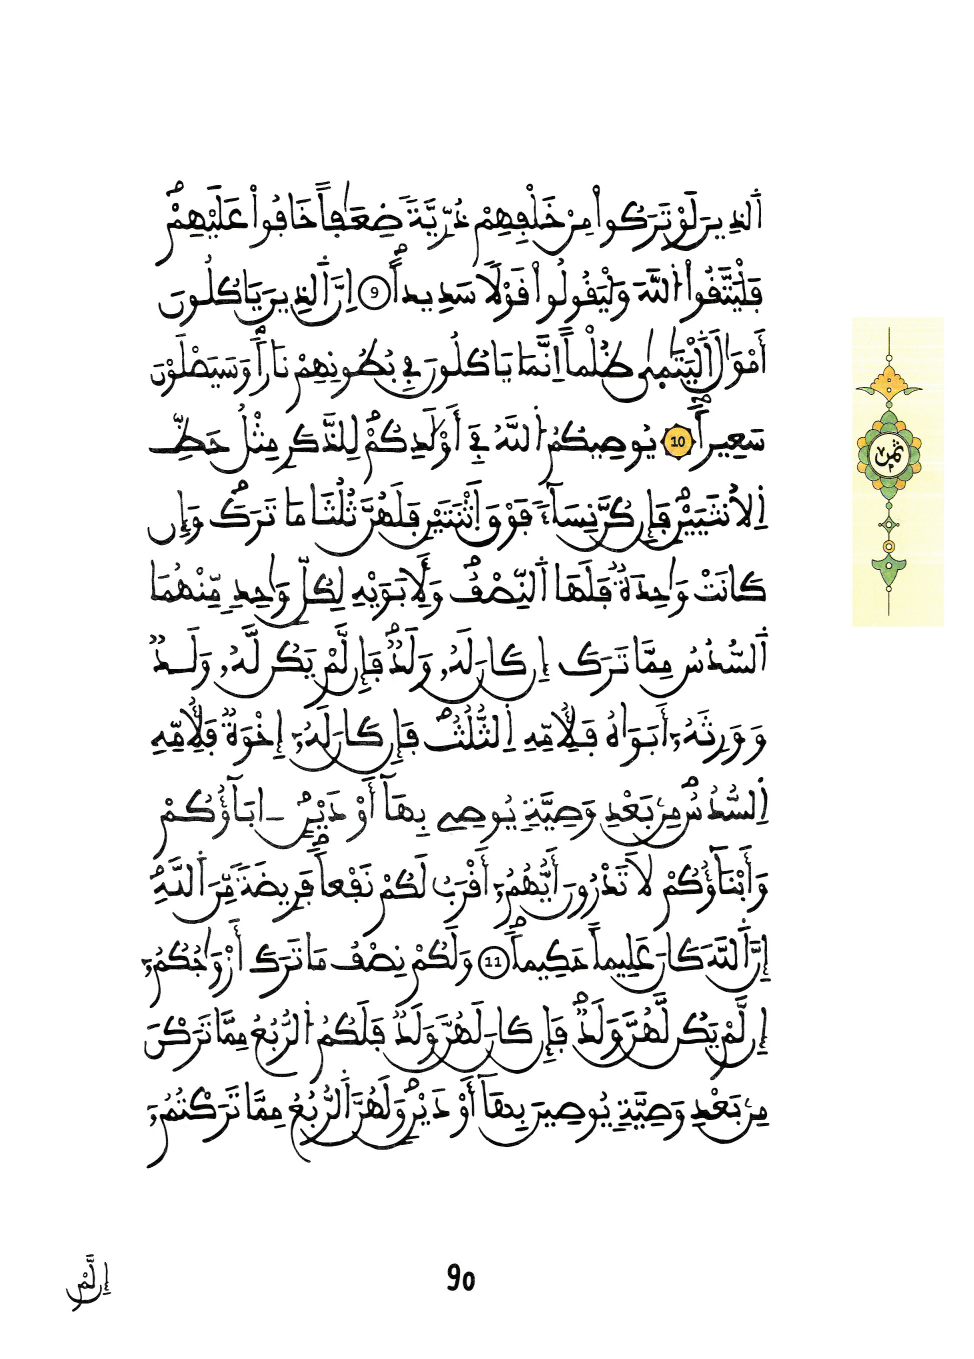 اَلذِينَ لَوْ تَرَكُواْ مِنْ خَلْفِهِمْ ذُرِّيَّةٗ ضِعَٰفاً خَافُواْ عَلَيْهِمْۖ
فَلْيَتَّقُواْ اُ۬للَّهَ وَلْيَقُولُواْ قَوْلٗا سَدِيداًۖ 9 إِنَّ اَ۬لذِينَ يَاكُلُونَ
أَمْوَٰلَ اَ۬لْيَتَٰمَىٰ ظُلْماً اِنَّمَا يَاكُلُونَ فِي بُطُونِهِمْ نَاراٗۖ وَسَيَصْلَوْنَ
سَعِيراٗۖ 10 يُوصِيكُمُ اُ۬للَّهُ فِيٓ أَوْلَٰدِكُمْۖ لِلذَّكَرِ مِثْلُ حَظِّ
اِ۬لُانثَيَيْنِۖ فَإِن كُنَّ نِسَآءٗ فَوْقَ اَ۪ثْنَتَيْنِ فَلَهُنَّ ثُلُثَا مَا تَرَكَۖ وَإِن
كَانَتْ وَٰحِدَةٞ فَلَهَا اَ۬لنِّصْفُۖ وَلِأَبَوَيْهِ لِكُلِّ وَٰحِدٖ مِّنْهُمَا
اَ۬لسُّدُسُ مِمَّا تَرَكَ إِن كَانَ لَهُۥ وَلَدٞۖ فَإِن لَّمْ يَكُن لَّهُۥ وَلَدٞ
وَوَرِثَهُۥٓ أَبَوَاهُ فَلِأُمِّهِ اِ۬لثُّلُثُۖ فَإِن كَانَ لَهُۥٓ إِخْوَةٞ فَلِأُمِّهِ
اِ۬لسُّدُسُۖ مِنۢ بَعْدِ وَصِيَّةٖ يُوصِے بِهَآ أَوْ دَيْنٍۖ ـ ابَآؤُكُمْ
وَأَبْنَآؤُكُمْ لَا تَدْرُونَ أَيُّهُمُۥٓ أَقْرَبُ لَكُمْ نَفْعاٗۖ فَرِيضَةٗ مِّنَ اَ۬للَّهِۖ
إِنَّ اَ۬للَّهَ كَانَ عَلِيماً حَكِيماٗۖ 11 وَلَكُمْ نِصْفُ مَا تَرَكَ أَزْوَٰجُكُمُۥٓ
إِن لَّمْ يَكُن لَّهُنَّ وَلَدٞۖ فَإِن كَانَ لَهُنَّ وَلَدٞ فَلَكُمُ اُ۬لرُّبُعُ مِمَّا تَرَكْنَ
مِنۢ بَعْدِ وَصِيَّةٖ يُوصِينَ بِهَآ أَوْ دَيْنٖۖ وَلَهُنَّ اَ۬لرُّبُعُ مِمَّا تَرَكْتُمُۥٓ
ثمن
إِن لَّمْ
90